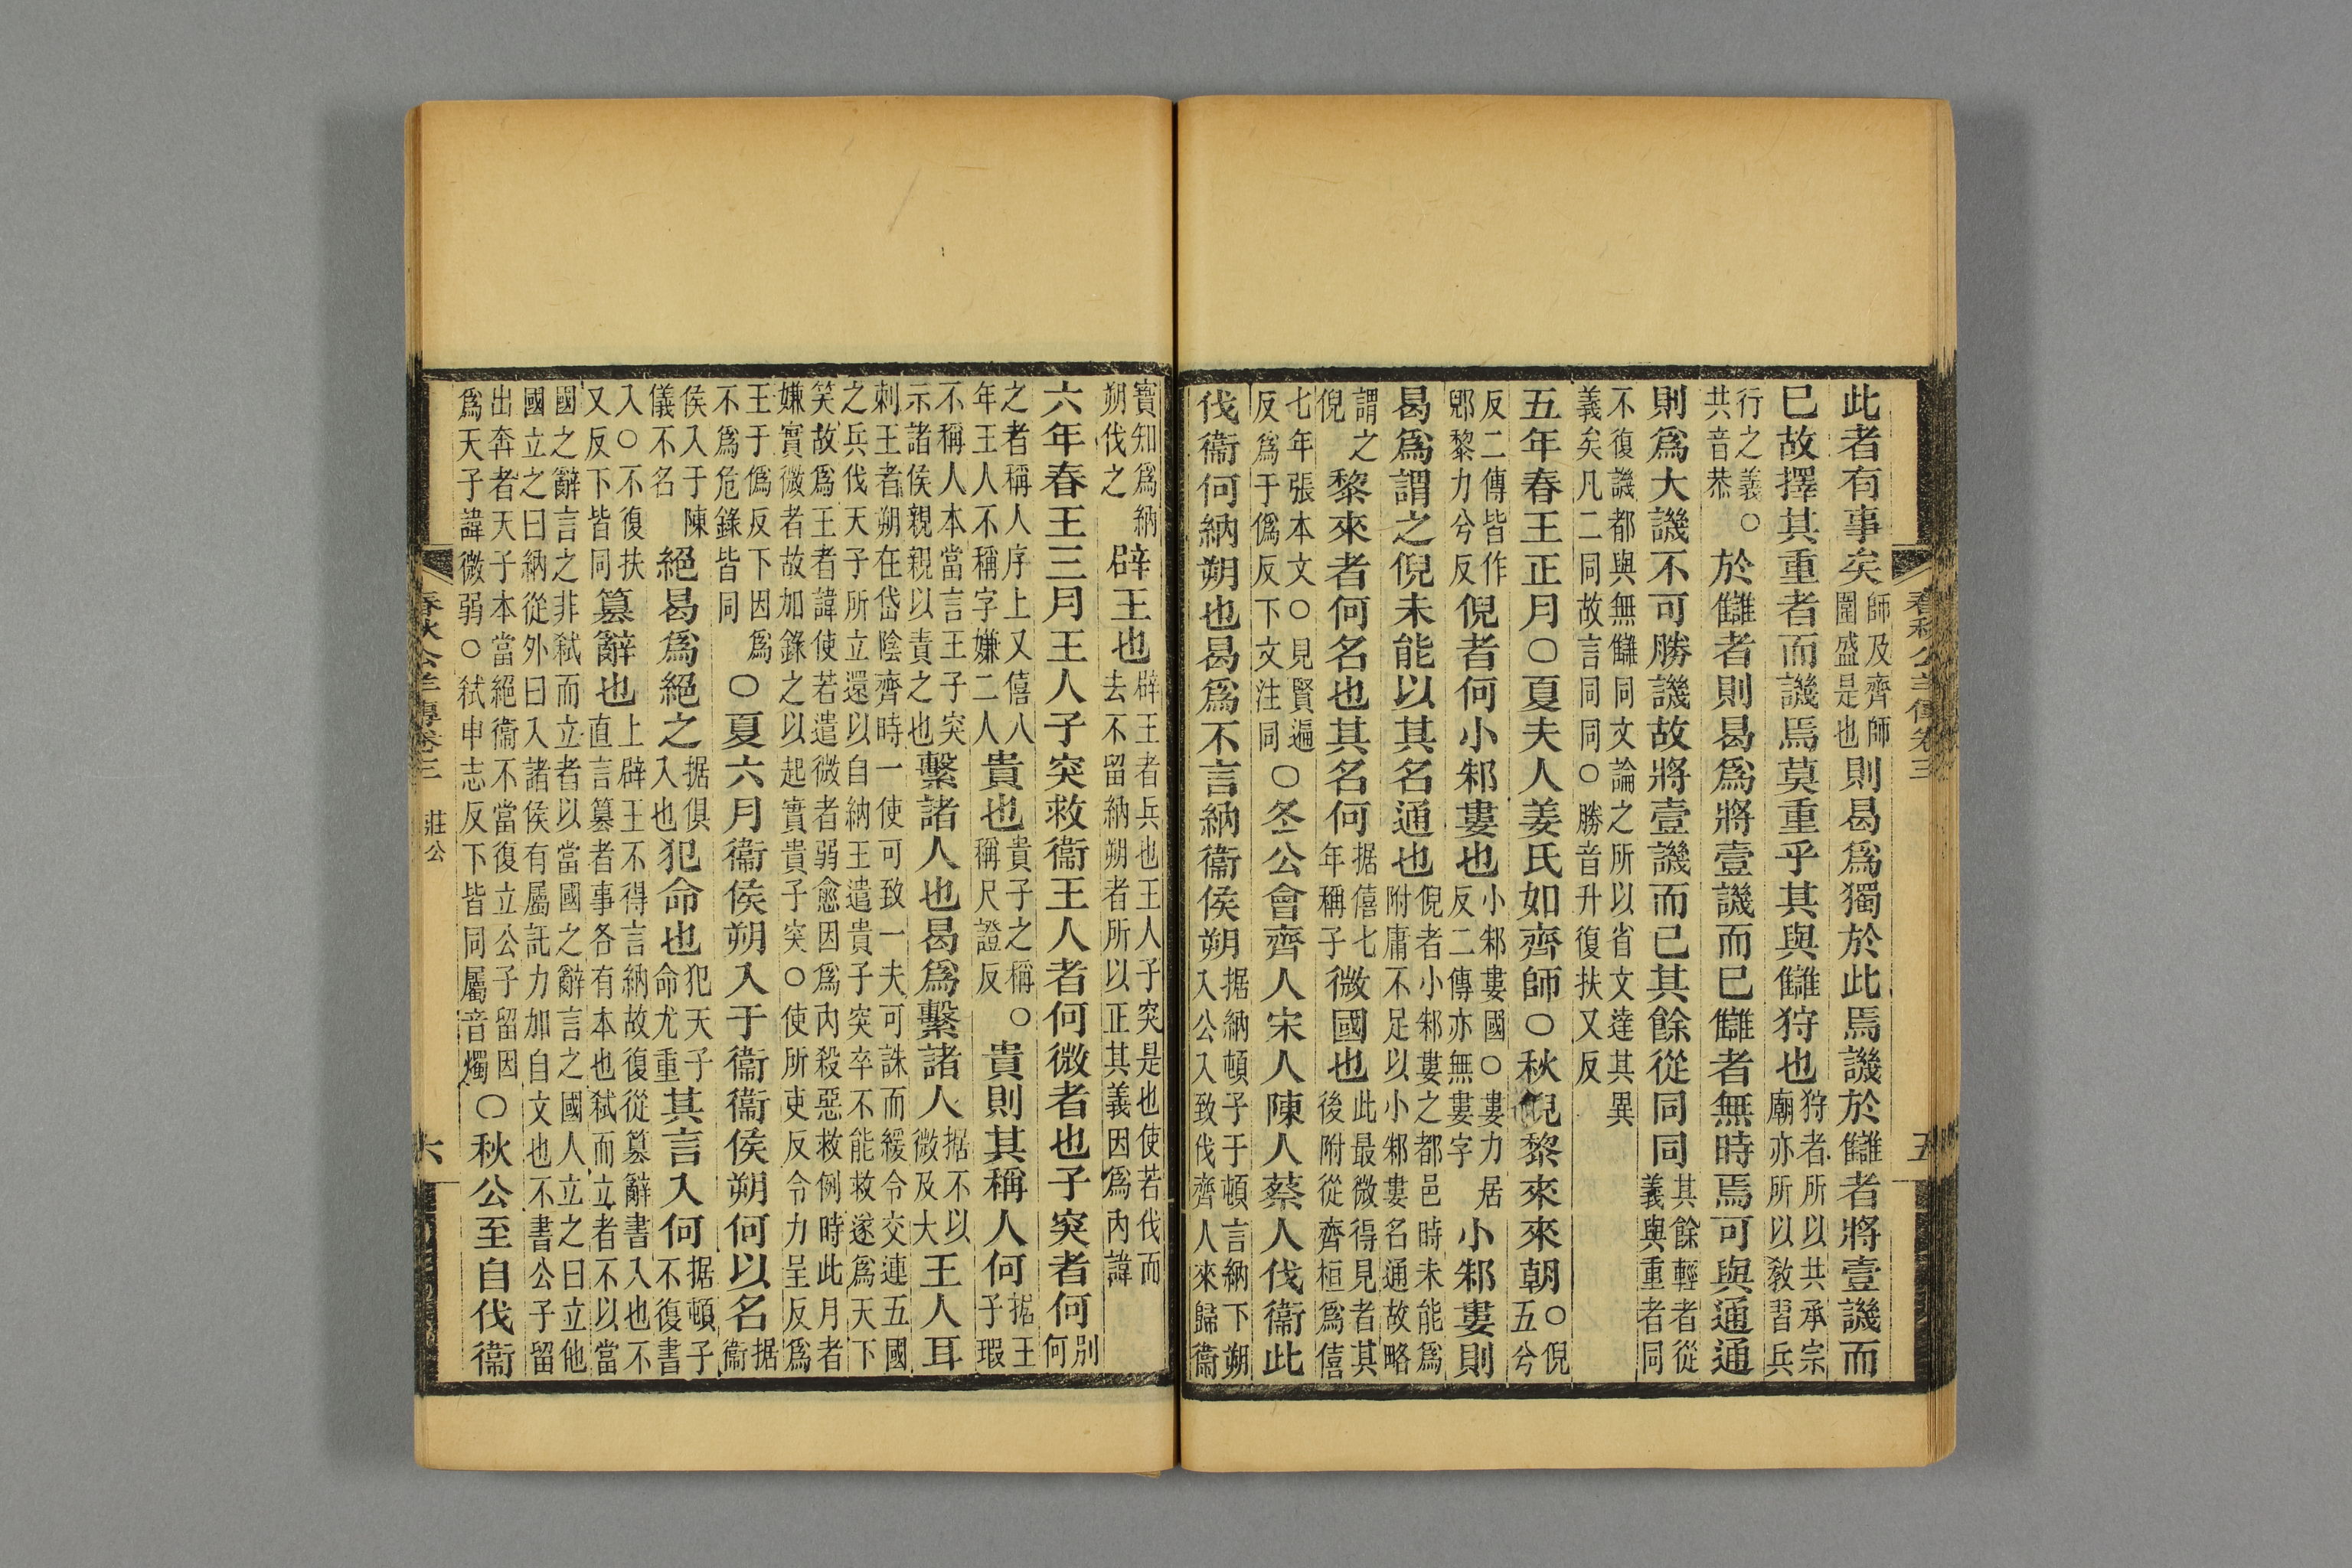 春秋公羊傳卷三
五
此者有事矣師及齊師圍盛是也則曷爲獨於此焉譏於讎者將壹譏而
巳故擇其重者而譏焉莫重乎其與讎狩也狩者所以共承宗廟亦所以敎習兵
行之義○共音恭於讎者則曷爲將壹譏而巳讎者無時焉可與通通
則爲大譏不可勝譏故將壹譏而已其餘從同同其餘輕者從義與重者同
不復譏都與無讎同文論之所以省文達其異義矣凡二同故言同同○勝音升復扶又反
五年春王正月○夏夫人姜氏如齊師○秋倪黎來來朝○倪五兮
反二傳皆作郳黎力兮反倪者何小邾婁也小邾婁國○婁力居反二傳亦無婁字小邾婁則
曷爲謂之倪未能以其名通也倪者小邾婁之都邑時未能爲附庸不足以小邾婁名通故略
謂之倪黎來者何名也其名何据僖七年稱子微國也此最微得見者其後附從齊桓爲僖
七年張本文○見賢遍反爲于僞反下文注同○冬公會齊人宋人陳人蔡人伐衞此
伐衞何納朔也曷爲不言納衞侯朔据納頓子于頓言納下朔入公入致伐齊人來歸衞
寳知爲納朔伐之辟王也辟王者兵也王人子突是也使若伐而去不留納朔者所以正其義因爲內諱
六年春王三月王人子突救衞王人者何微者也子突者何別何
之者稱人序上又僖八年王人不稱字嫌二人貴也貴子之稱○稱尺證反貴則其稱人何据王子瑕
不稱人本當言王子突示諸侯親親以責之也繫諸人也曷爲繫諸人据不以微及大王人耳
刺王者朔在岱陰齊時一使可致一夫可誅而緩令交連五國之兵伐天子所立還以自納王遣貴子突卒不能救遂爲天下
笑故爲王者諱使若遣微者弱愈因爲內殺惡救例時此月者嫌實微者故加錄之以起實貴子突○使所吏反令力呈反爲
王于僞反下因爲不爲危錄皆同○夏六月衞侯朔入于衞衞侯朔何以名据衞
侯入于陳儀不名絕曷爲絕之据俱入也犯命也犯天子命尤重其言入何据頓子不復書
入○不復扶又反下皆同篡辭也上辟王不得言納故復從篡辭書入也不直言篡者事各有本也弑而立者不以當
國之辭言之非弑而立者以當國之辭言之國人立之曰立他國立之曰納從外曰入諸侯有屬託力加自文也不書公子留
出奔者天子本當絕衞不當復立公子留因爲天子諱微弱○弑申志反下皆同屬音燭○秋公至自伐衞
春秋公羊傳卷三 莊公
六